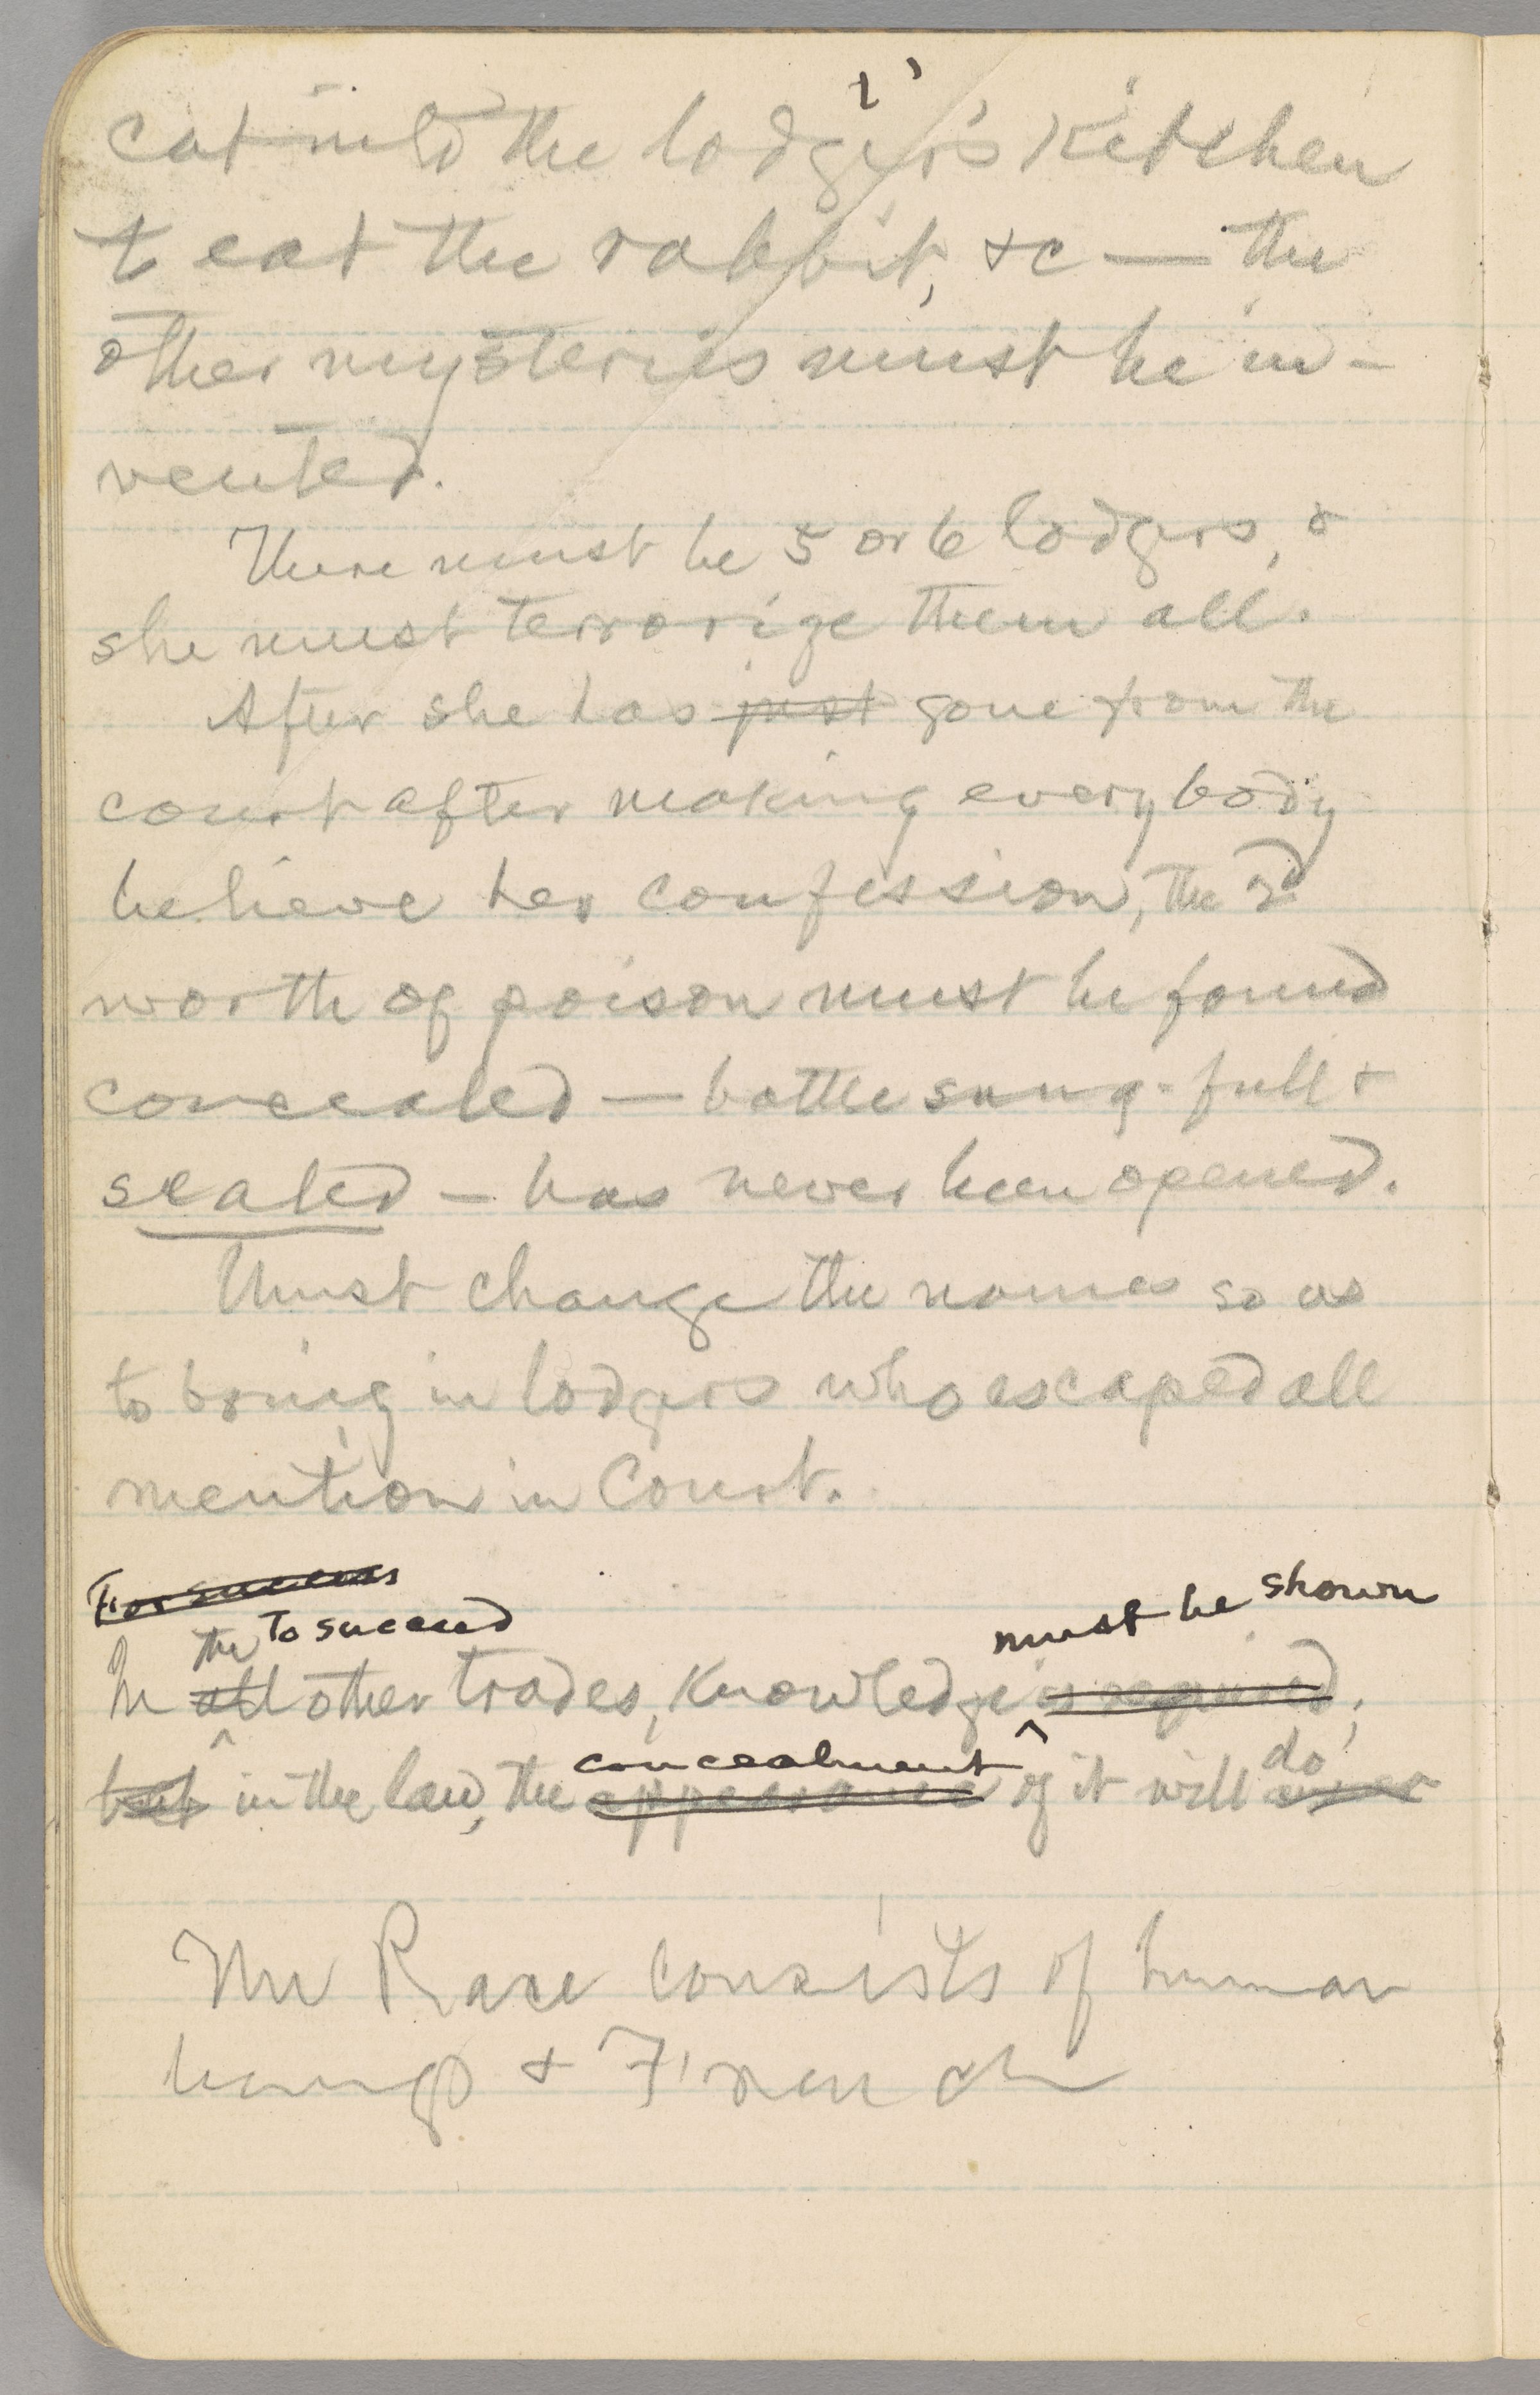 cat into the lodger's kitchen
to eat the rabbit, &c — the
other mysteries must be in-
vented.
There must be 5 or 6 lodgers, &
she must terrorize them all.
After she has just gone from the
court after making everybody
believe her confession, the 2d
worth of poison must be found
concealed — bottle snug-full &
sealed — has never been opened.
Must change the names so as
to bring in lodgers who escaped all
mention in Court.
For success
the To succeed must be shown
In all other trades, knowledge is required;
concealment do
but in the law, the appearance of it will
The Race consists of human
beings & French